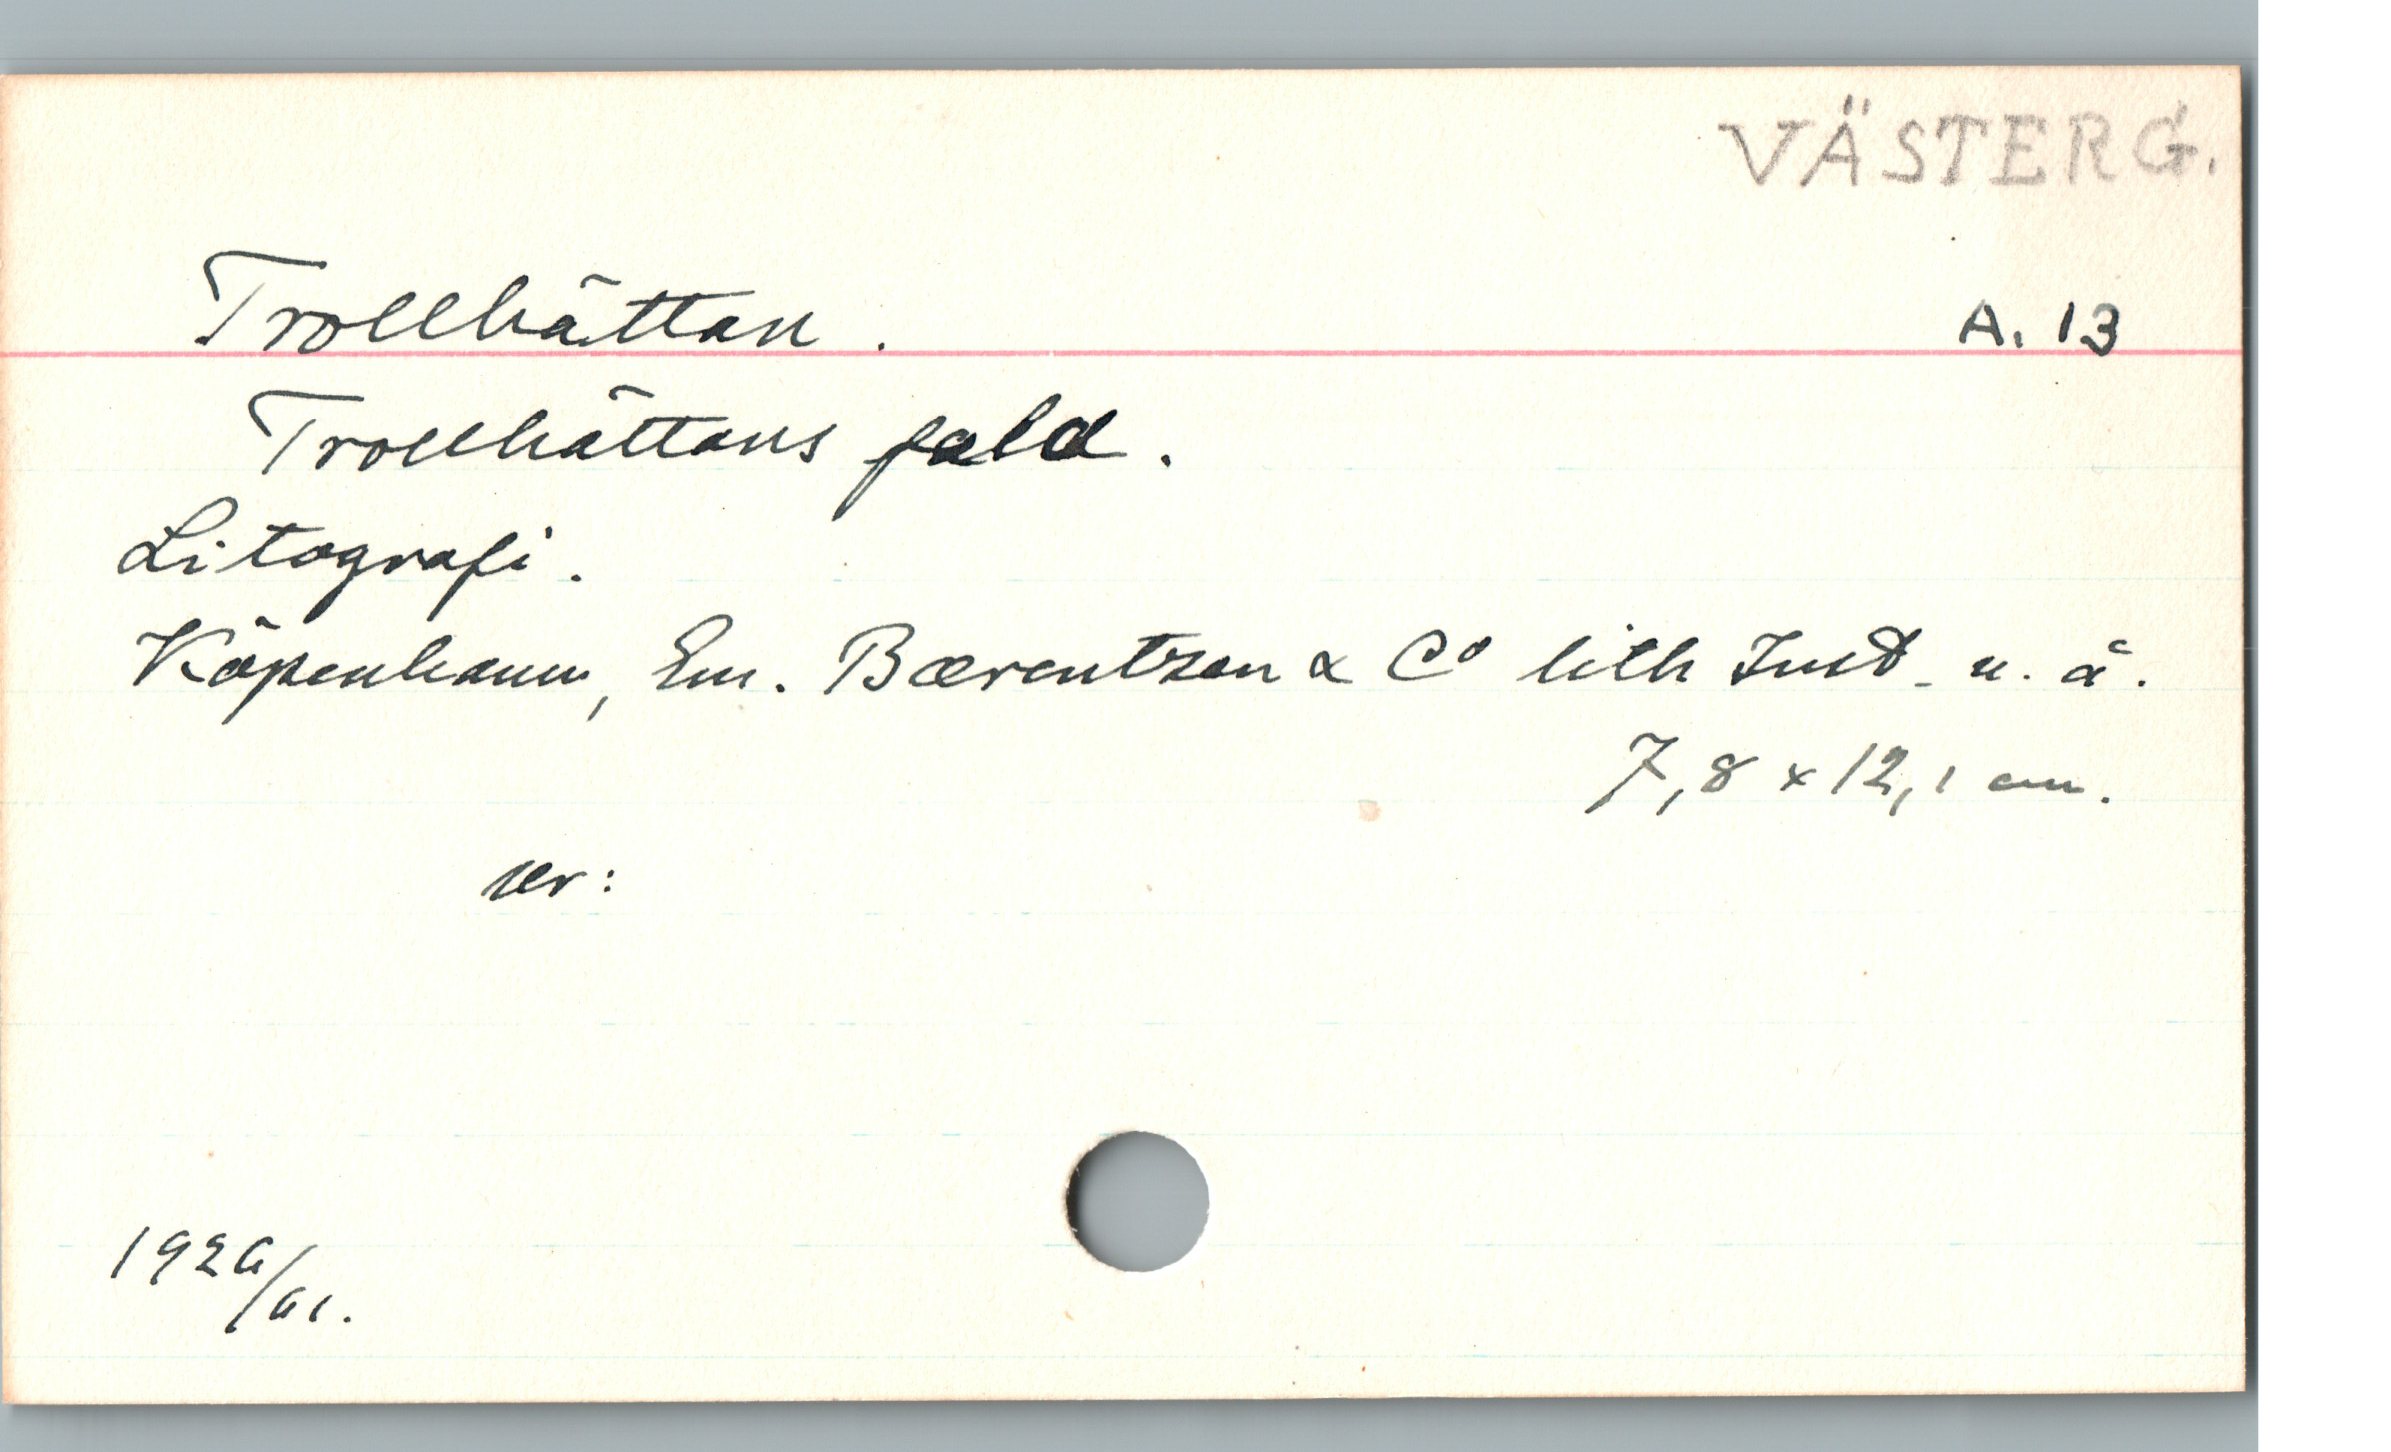 VÄSTERG.
Trollhättan.
A. 13
Trollhättans fald.
Litografi.
Köpenhamn, Em. Bærentzen & Cº lith Inst. u. å.
7,8 x 12,1 cm.
ur:
1926/61.